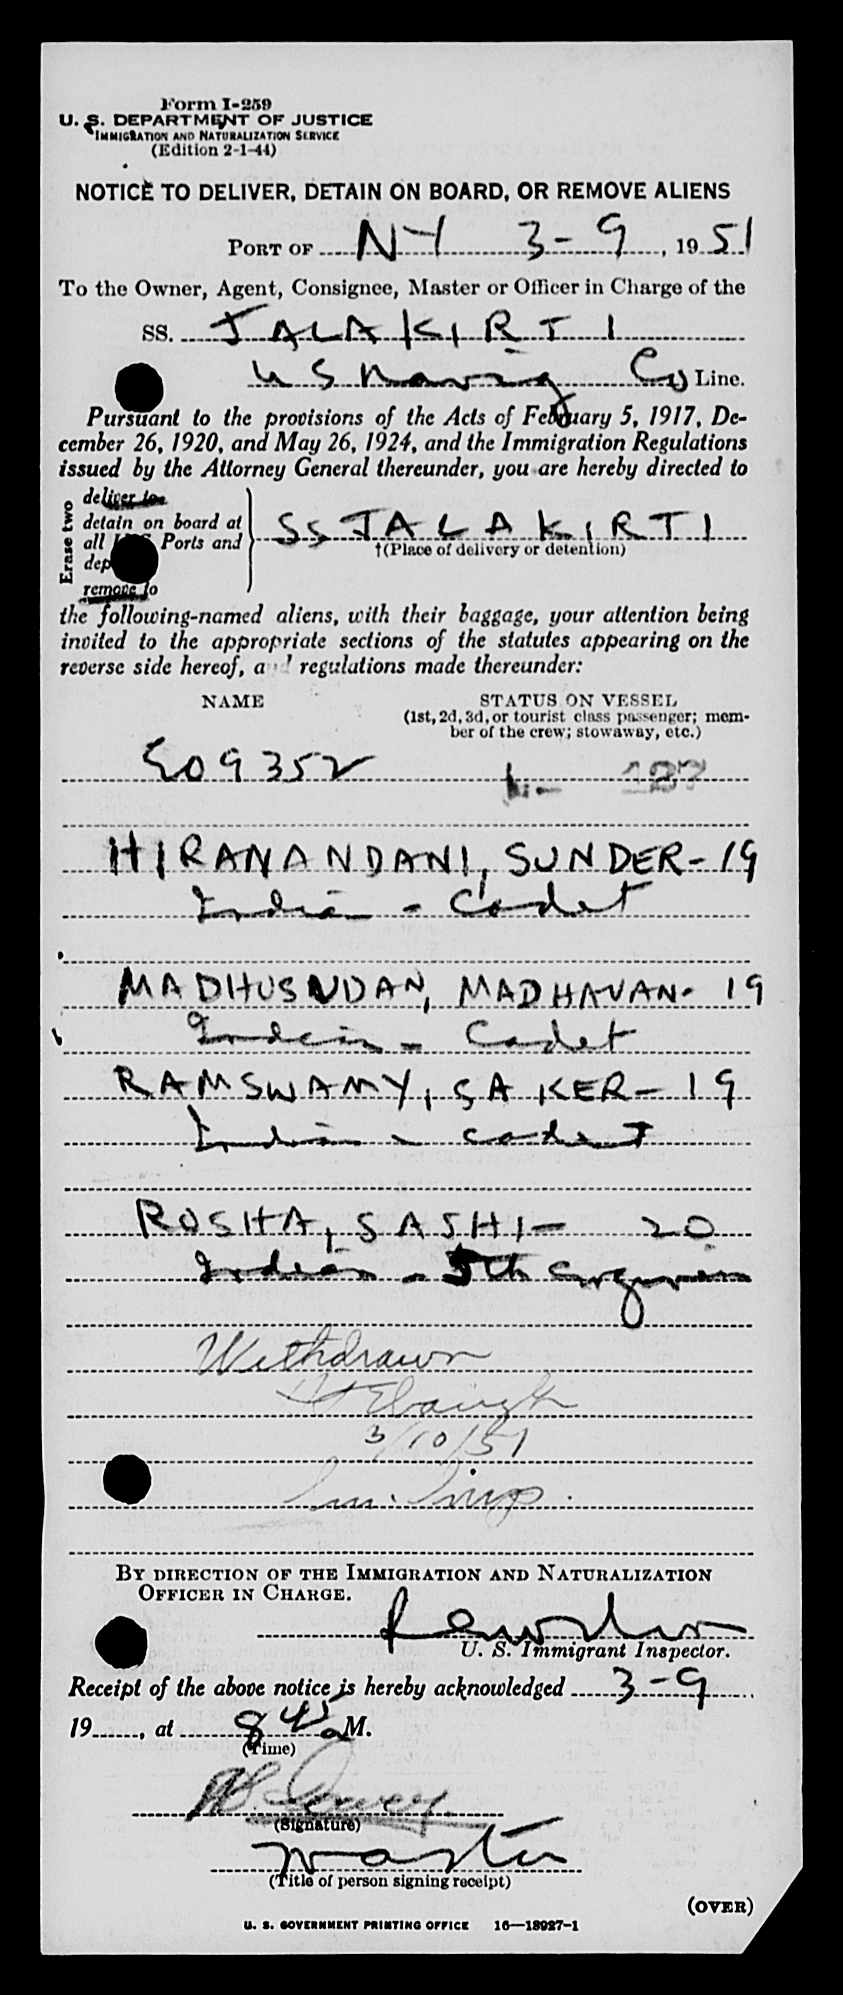 Form I-259
U. S. DEPARTMENT OF JUSTICE
IMMIGRATION AND NATURALIZATION SERVICE
(Edition 2-1-44)
NOTICE TO DELIVER, DETAIN ON BOARD, OR REMOVE ALIENS
PORT OF NY 3-9, 1951
To the Owner, Agent, Consignee, Master or Officer in Charge of the
SS. JALAKIRTI
U S Navig Co Line.
Pursuant to the provisions of the Acts of February 5, 1917, De-
cember 26, 1920, and May 26, 1924, and the Immigration Regulations
issued by the Attorney General thereunder, you are hereby directed to
Erase two
deliver to
detain on board at
all Ports and
SS JALAKIRTI
†(Place of delivery or detention)
remove to
the following-named aliens, with their baggage, your attention being
invited to the appropriate sections of the statutes appearing on the
reverse side hereof, and regulations made thereunder:
NAME STATUS ON VESSEL
(1st, 2d, 3d, or tourist class passenger; mem-
ber of the crew; stowaway, etc.)
E09352
HIRANANDANI, SUNDER-19
Indian - Cadet
MADHUSUDAN, MADHAVAN- 19
Indian - Cadet
RAMSWAMY, SAKER- 19
Indian - cadet
ROSHA, SASHI- 20
Indian - 5th Engineer
Withdrawn
3/10/51
Im. Insp.
BY DIRECTION OF THE IMMIGRATION AND NATURALIZATION
OFFICER IN CHARGE.
U. S. Immigrant Inspector.
Receipt of the above notice is hereby acknowledged 3-9
19......, at 8 45 aM.
(Time)
(Signature)
Master
(Title of person signing receipt)
(OVER)
U. S. GOVERNMENT PRINTING OFFICE 16—18927-1